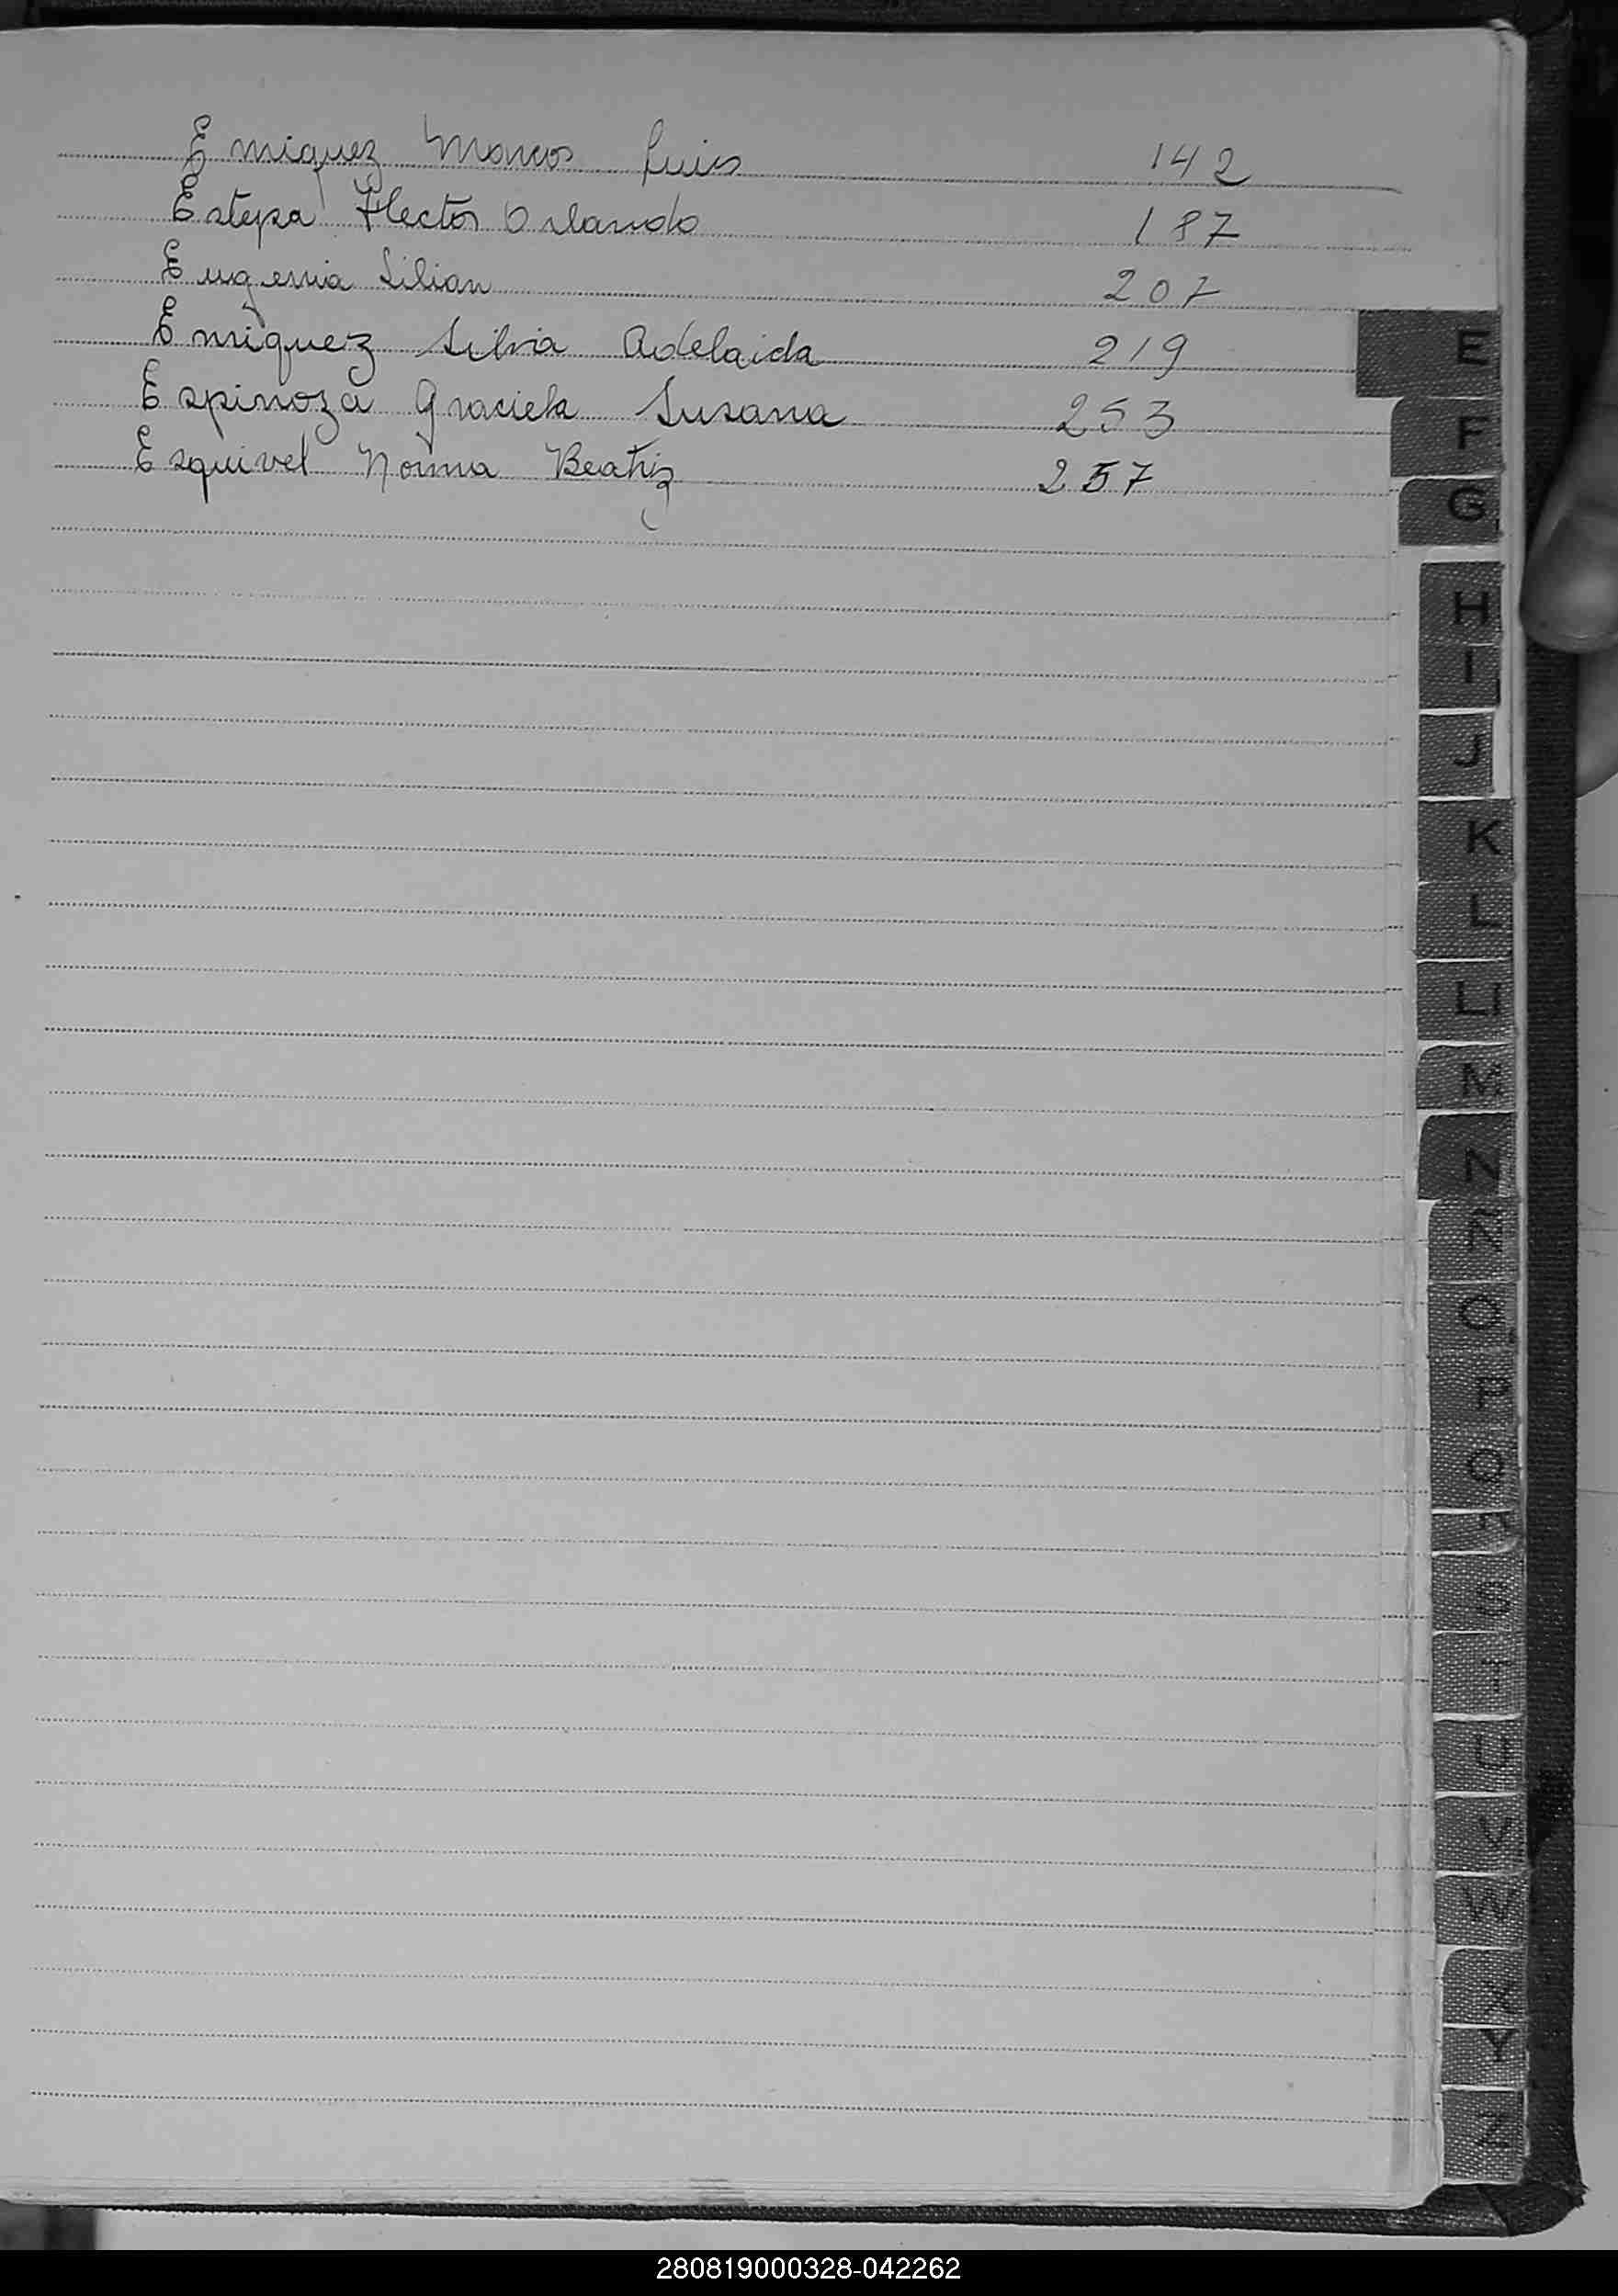 Enriquez Marcos Luis 142
Estepa Hector Orlando 187
Eugenia Lilian 207
Enriquez Silvia Adelaida 219
Espinoza Graciela Susana 253
Esquivel Norma Beatriz 257
E
F
G
H
I
J
K
L
LL
M
N
Ñ
O
P
Q
S
T
U
V
W
X
Y
Z
280819000328-042262